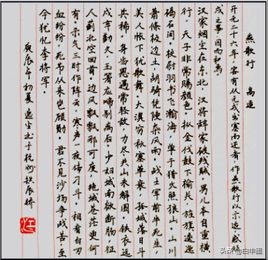 燕歌行 高適
开元二十六年客有从元戎出塞而还者作燕歌行以示适感征
戍之事因而和焉
汉家烟尘在东北汉将辞家破残贼男儿本自重横
行天子非常赐颜色摐金伐鼓下榆关旌旗逶迤
碣石间校尉羽书飞瀚海单于猎火照狼山山川
萧条极边土胡骑凭陵杂风雨战士军前半死生
美人帐下犹歌舞大漠穷秋塞草衰孤城落日斗
兵稀身当恩遇常轻敌力尽关山未解围铁衣远
戍辛勤久玉箸应啼别离后少妇城南欲断肠征
人蓟北空回首边风飘飖那可度绝域苍茫更何
有杀气三时作阵云寒声一夜传刁斗相看白刃
血纷纷死节从来岂顾勋君不见沙场争战苦至
今犹忆李将军
庚辰年初夏